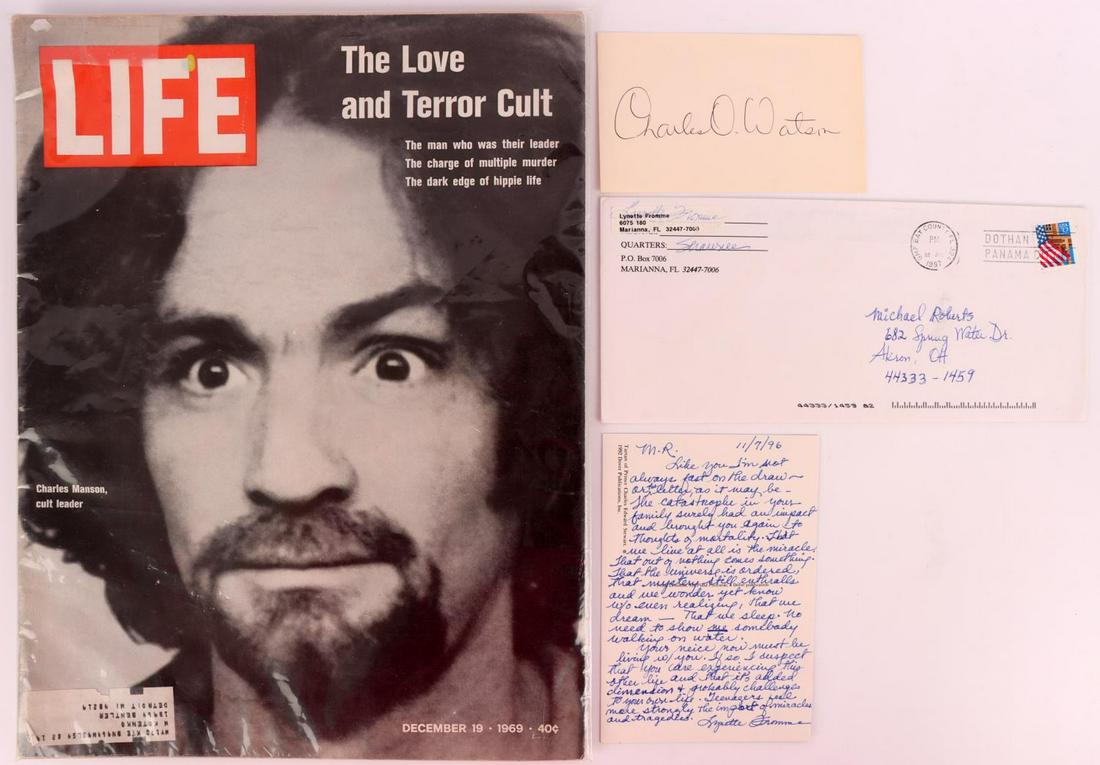 LIFE
The Love
and Terror Cult
The man who was their leader
The charge of multiple murder
The dark edge of hippie life
Charles Manson,
cult leader
DETROIT MI 48219
DECEMBER 19 · 1969 · 40¢
Charles D. Watson
Lynette Fromme
6075 180
Marianna, FL 32447-7006
QUARTERS: Shawnee
P.O. Box 7006
MARIANNA, FL 32447-7006
PM
1997
DOTHAN
PANAMA
Michael Roberts
682 Spring Water Dr.
Akron, OH
44333-1459
44333/1459 82
Tartan of Prince Charles Edward Stewart
1992 Dover Publications, Inc.
M.R. 11/7/96
Like you I'm not
always fast on the draw –
or letter, as it may be –
The catastrophe in your
family surely had an impact
and brought you again to
thoughts of mortality. That
we live at all is the miracle.
That out of nothing comes something.
That the universe is ordered,
that mystery still enthralls
and we wonder yet know
w/o even realizing, that we
dream — That we sleep. No
need to show me somebody
walking on water.
Your neice now must be
living w/you. If so, I suspect
that you are experiencing this
other life and that its added
dimension & probably challenges
to your own life. Teenagers feel
more strongly the import of miracles
and tragedies. Lynette Fromme